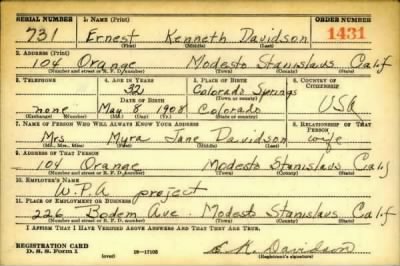 SERIAL NUMBER 1. NAME (Print) ORDER NUMBER
731 Ernest Kenneth Davidson 1431
(First) (Middle) (Last)
2. ADDRESS (Print)
104 Orange Modesto Stanislaus Calif
(Number and street or R. F. D. number) (Town) (County) (State)
3. TELEPHONE 4. AGE IN YEARS 5. PLACE OF BIRTH 6. COUNTRY OF CITIZENSHIP
32 Colorado Springs
DATE OF BIRTH (Town or county)
none May 8 1908 Colorado USA
(Exchange) (Number) (Mo.) (Day) (Yr.) (State or country)
7. NAME OF PERSON WHO WILL ALWAYS KNOW YOUR ADDRESS 8. RELATIONSHIP OF THAT PERSON
Mrs Myra Jane Davidson wife
(Mr., Mrs., Miss) (First) (Middle) (Last)
9. ADDRESS OF THAT PERSON
104 Orange Modesto Stanislaus Calif
(Number and street or R. F. D. number) (Town) (County) (State)
10. EMPLOYER'S NAME
W.P.A project
11. PLACE OF EMPLOYMENT OR BUSINESS
226 Bodem Ave. Modesto Stanislaus Calif
(Number and street or R. F. D. number) (Town) (County) (State)
I AFFIRM THAT I HAVE VERIFIED ABOVE ANSWERS AND THAT THEY ARE TRUE.
REGISTRATION CARD
D. S. S. Form 1 (over) 16—17105 (Registrant's signature)
K. Davidson